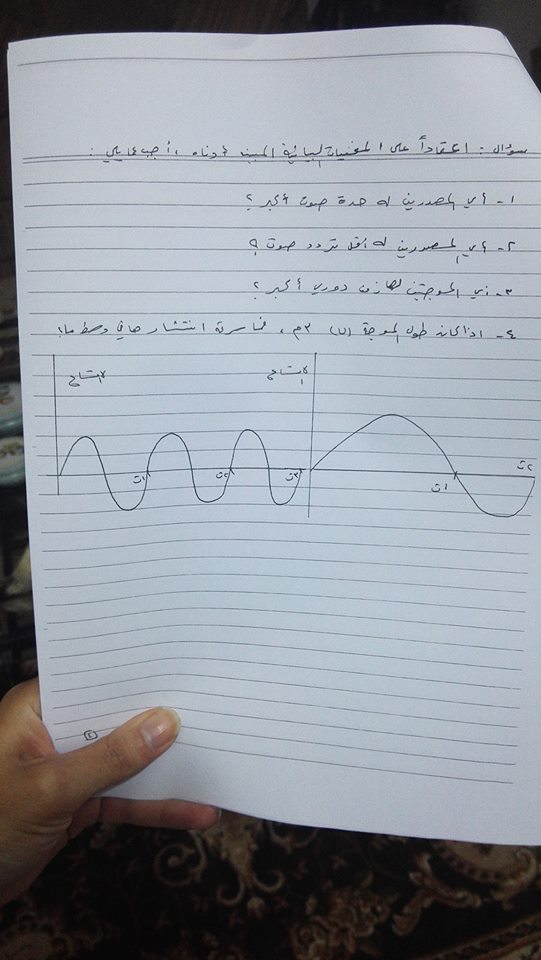 سؤال : اعتماداً على المنحنيات البيانية المبينة أدناه ، أجب عما يلي :
١- أي المصدرين له حدة صوت أكبر ؟
٢- أي المصدرين له أقل تردد صوت ؟
٣- أي الموجتين لها زمن دوري أكبر ؟
٤- اذا كان طول الموجة (س) ٣م ، فما سرعة انتشارها في وسط ما؟
الازاحة
الازاحة
ت١
ت٢
ت٣
ت١
ت٢
٤